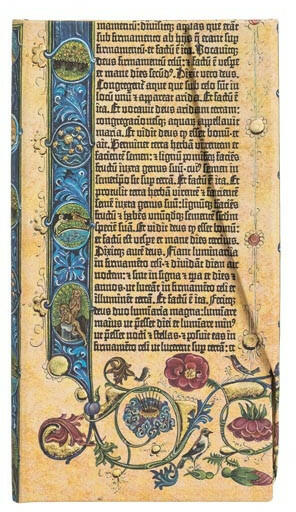 mamentum: divisitq; aquas que erāt
sub firmamento ab hijs q̄ erant sup
firmamentū: et factū ē ita. Vocavitq;
deus firmamentū celū: & factū ē vespe
et mane dies secūd⁹. Dixit vero deus.
Congregent̄ aque que sub celo sūt in
locū unū & appareat arida. Et factū ē
ita. Et vocavit deus aridam terram:
congregacionesq; aquarū appellavit
maria. Et vidit deus q̄ esset bonū· et
ait. Germinet terra herbā virentem et
facientē semen: & lignū pomiferū faciēs
fructū iuxta genus suū· cui⁹ semen in
semetipo sit sup terrā. Et factū ē ita. Et
protulit terra herbā virentē & facientē
semē iuxta genus suū: lignūq; faciēs
fructū & habēs unūqdq; sementē scdm
speciē suā. Et vidit deus q̄ esset bonū:
et factū est vespe et mane dies tercius.
Dixitq; autē deus. Fiant luminaria
in firmamēto celi· & dividāt diem ac
noctem: & sint in signa & tpa & dies &
annos· ut luceāt in firmamēto celi et
illuminēt terrā. Et factū ē ita. Fecitq;
deus duo luminaria magna: luminare
maius ut p̄esset diei et luminare min⁹
ut p̄esset nocti· & stellas· & posuit eas in
firmamēto celi ut lucerent sup terrā: et